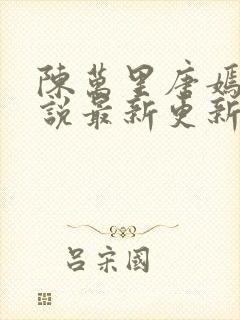 陳萬里唐嫣
說最新更新
呂宋國